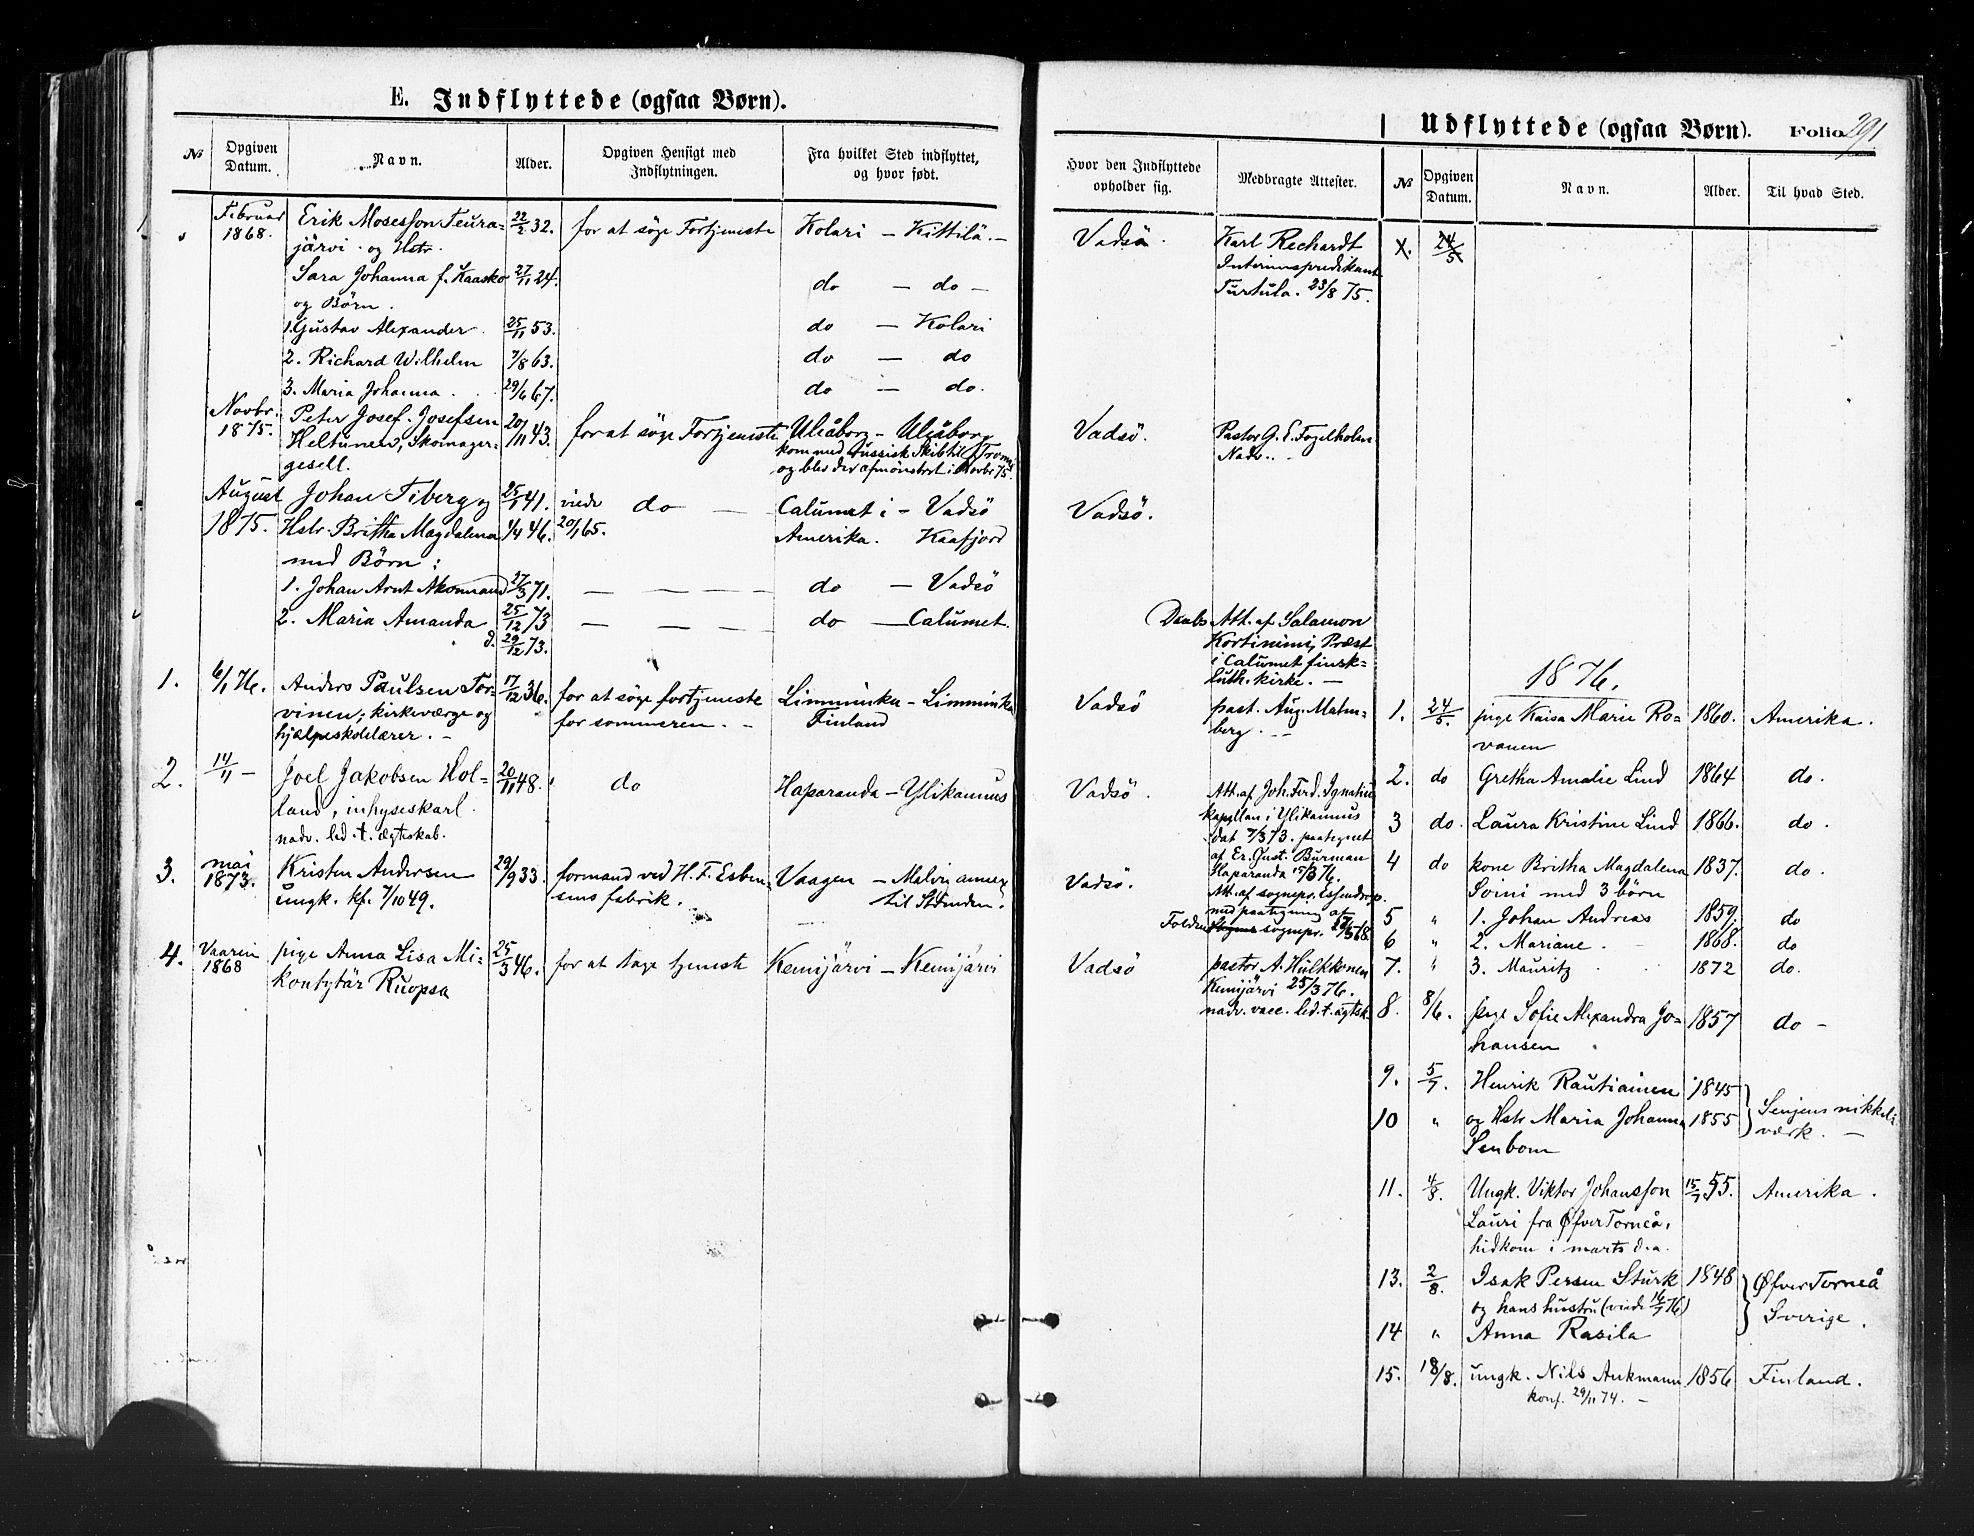 E. Indflyttede (ogsaa Børn).
№ Opgiven Datum. Navn. Alder. Opgiven Hensigt med Indflytningen. Fra hvilket Sted indflyttet, og hvor født.
Februar 1868. Erik Mosesson Teura- 22/2 32. for at söge Fortjeneste Kolari — Kittilä. —
järvi og Hstr
Sara Johanna f. Kaasko 27/11 24. do — do —
og Börn.
1. Gustav Alexander 25/11 53. do — Kolari
2. Richard Wilhelm 7/8 63. do — do
3. Maria Johanna. 29/6 67. do — do.
Novbr. 1875. Peter Josef Josefsen 20/11 43. for at söge Fortjeneste Uleåborg — Uleåborg
Heltunen, Skomager- kom med russisk Skib til Tromsö
gesell. og blev der afmönstret i Novbr 75.
August 1875. Johan Tiberg og 25/1 41. viede do — Calumet i — Vadsö
Hstr. Britha Magdalena 1/4 46. 20/1 65. Amerika. Kaafjord
med Börn:
1. Johan Arnt Nkomand 27/3 71. — — — — do — Vadsö
2. Maria Amanda 25/12 73 — — — — do — Calumet.
d. 29/12 73.
1. 6/1 76. Anders Paulsen Tor- 17/12 36. for at söge fortjeneste Limminka — Limminka
vinen; kirkeværge og for sommeren. — Finland
hjælpeskolelærer. —
2. 14/11 — Joel Jakobsen Hol- 20/11 48. do Haparanda — Ylikannus
land, inhyseskarl
nadv. led. t. ægteskab.
3. mai 1873. Kristen Andersen 29/9 33. formand ved H. F. Esben- Vaagen — Malvig annex
ungk. kf. 7/10 49. sens fabrik. til Strinden.
4. Vaaren 1868 pige Anna Lisa Mi- 25/3 46. for at tage tjeneste Kemijärvi — Kemijärvi
kontytär Ruopsa
Udflyttede (ogsaa Børn). Folio 291
Hvor den Indflyttede opholder sig. Medbragte Attester. № Opgiven Datum. Navn. Alder. Til hvad Sted.
Vadsö. Karl Rechardt x. 24/5
Interimspredikant
Turtula. 23/8 75.
Vadsö. Pastor G. E. Fogelholm
Nadv. —
Vadsö.
Daabs Att. af Salamon
Kortiniemi, Præst
i Calumet finsk-
luth. kirke. —
1876.
Vadsö past. Aug. Malm- 1. 24/5. pige Kaisa Marie Ro- 1860. Amerika.
berg. — vanen
2. do Gretha Amalie Lind 1864 do.
Vadsö. Att. af Joh. Ferd. Ignatius
kapellan i Ylikannus 3 do. Laura Kristine Lind 1866. do.
dat 7/3 73. paategnet
af Er. Gust. Burman 4 do kone Britha Magdalena 1837. do.
Haparanda 15/3 76. Soini med 3 börn
Vadsö. Att. af sognepr. Essendrop
med paategning af 5 " 1. Johan Andreas 1859. do
Folden sognepr. 29/5 68. 6 " 2. Mariane. 1868. do
Vadsö pastor A. Hulkkonen 7. " 3. Mauritz 1872 do.
Kemijärvi 25/3 76.
nadv. vacc. led. t. ægtsk. 8. 8/6. pige Sofie Alexandra Jo- 1857 do —
hansen
9. 5/7. Henrik Rautiainen 1845 Senjens nikkel-
10 " og Hstr Maria Johanna 1855 værk. —
Senbom
11. 4/8. Ungk. Viktor Johansson 15/7 55. Amerika.
Lauri fra Øfver Torneå,
hidkom i marts d. a.
13. 2/8. Isak Persen Sturk 1848 Øfver Torneå
og hans hustru (viede 16/7 76) Sverige.
14 " Anna Rasila
15. 18/8. ungk. Nils Ankmann 1856 Finland.
konf. 29/11 74. —